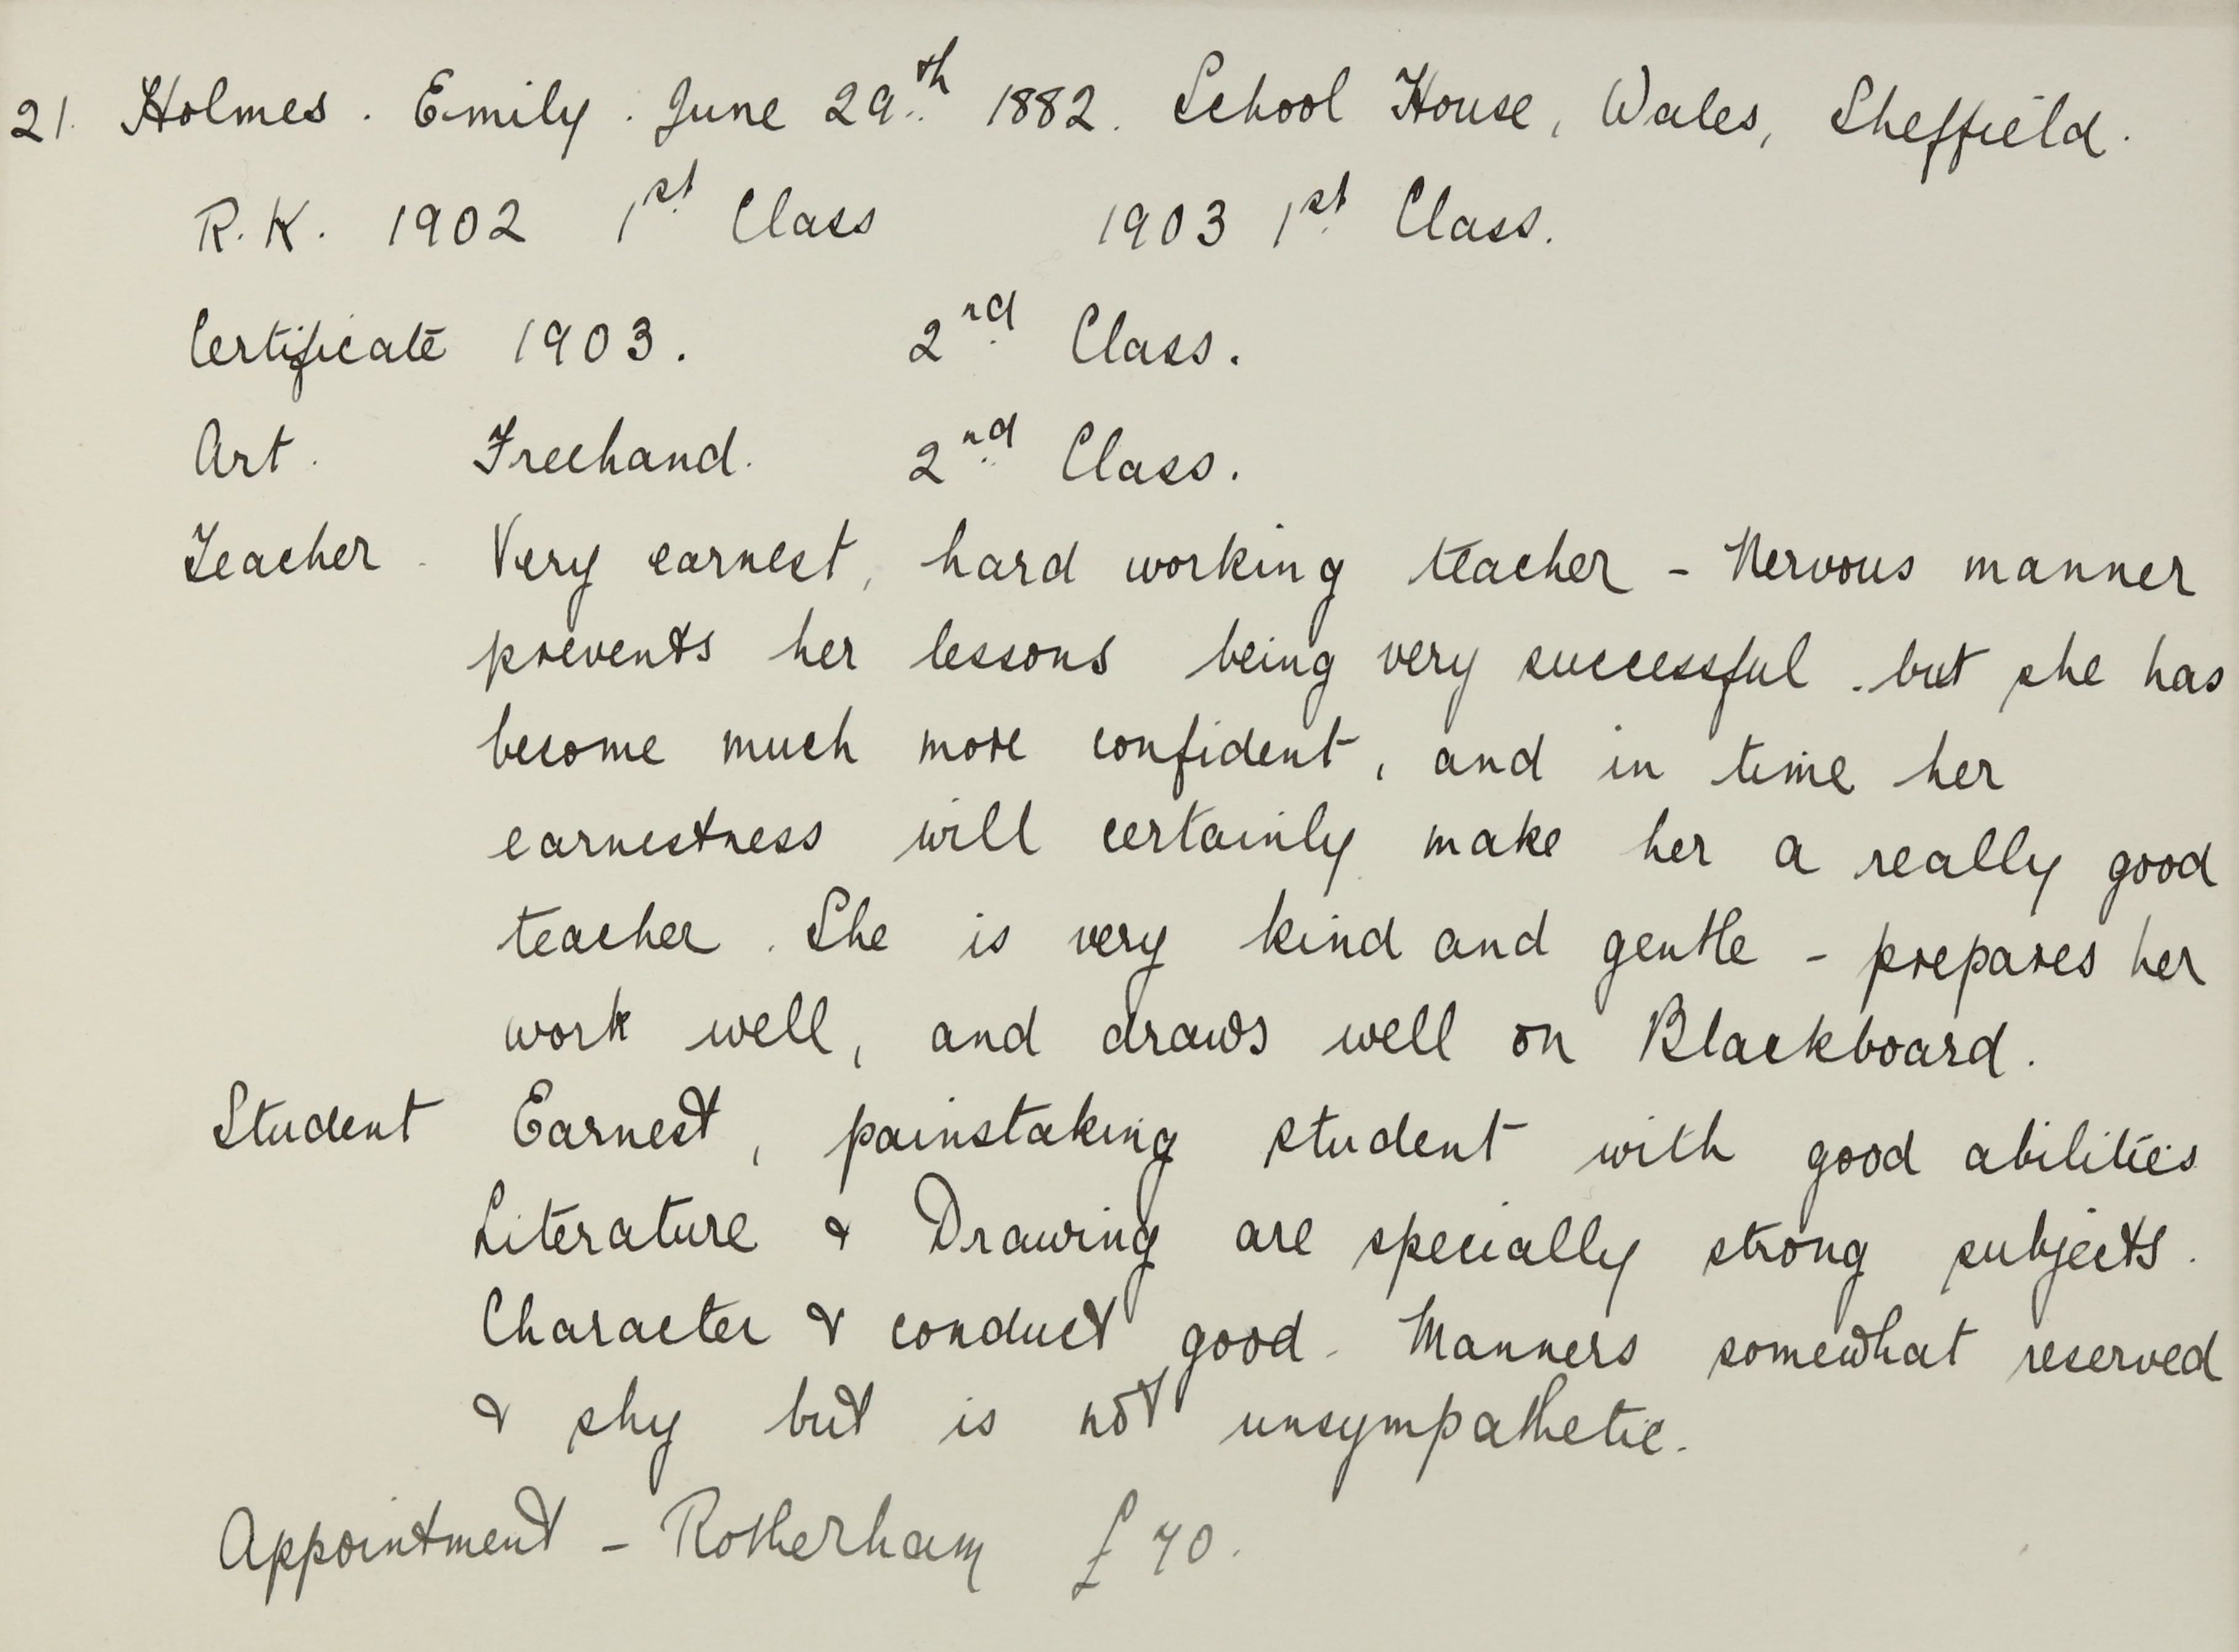 21. Holmes. Emily. June 29th 1882. School House, Wales, Sheffield.
R.K. 1902 1st Class 1903 1st Class.
Certificate 1903. 2nd Class.
Art. Freehand. 2nd Class.
Teacher. Very earnest, hard working teacher - Nervous manner
prevents her lessons being very successful. but she has
become much more confident, and in time her
earnestness will certainly make her a really good
teacher. She is very kind and gentle - prepares her
work well, and draws well on Blackboard.
Student Earnest, painstaking student with good abilities
Literature & Drawing are specially strong subjects.
Character & conduct good. Manners somewhat reserved
& shy but is not unsympathetic.
Appointment - Rotherham £70.